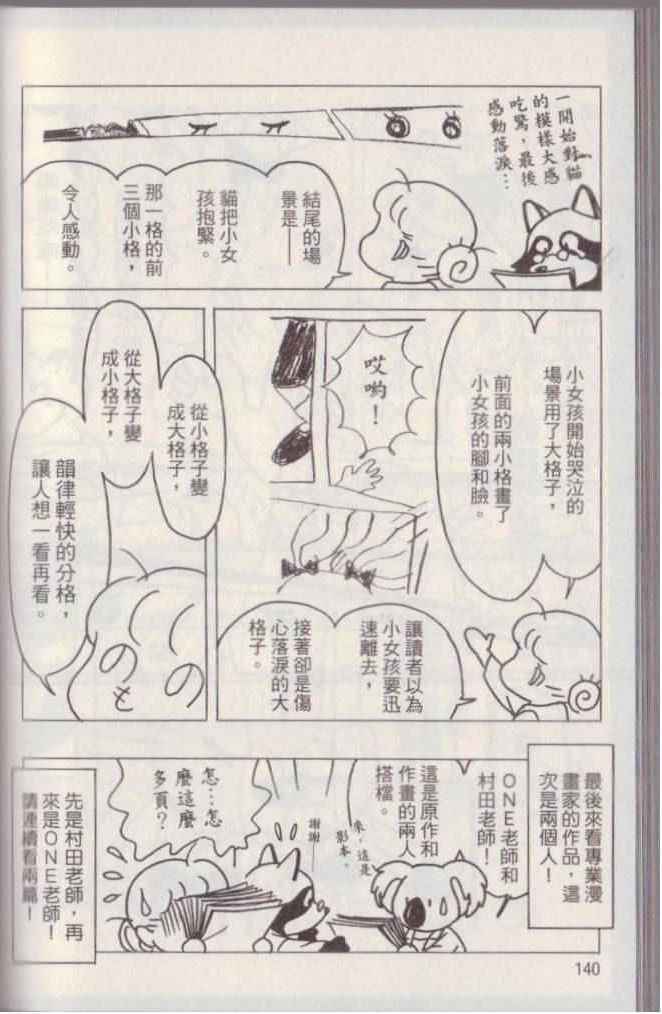 一開始對貓
的模樣大感
吃驚，最後
感動落淚…
結尾的場
景是——
貓把小女
孩抱緊。
那一格的前
三個小格，
令人感動。
小女孩開始哭泣的
場景用了大格子，
前面的兩小格畫了
小女孩的腳和臉。
哎喲！
讓讀者以為
小女孩要迅
速離去，
接著卻是傷
心落淚的大
格子。
從小格子變
成大格子，
從大格子變
成小格子，
韻律輕快的分格，
讓人想一看再看。
最後來看專業漫
畫家的作品，這
次是兩個人！
ONE老師和
村田老師！
這是原作和
作畫的兩人
搭檔。
來，這是
影本。
謝謝
怎…怎
麼這麼
多頁？
先是村田老師，再
來是ONE老師！
請連續看兩篇！
140